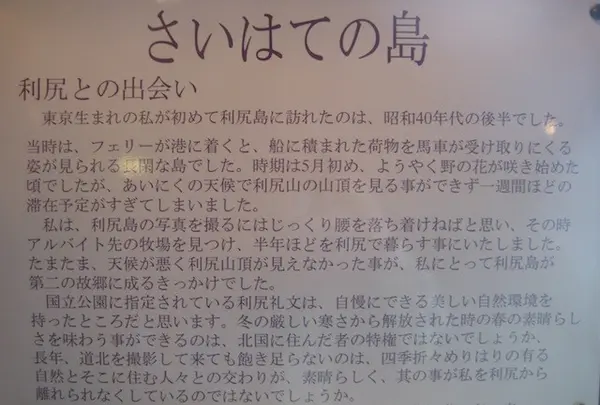 さいはての島
利尻との出会い
東京生まれの私が初めて利尻島に訪れたのは、昭和40年代の後半でした。
当時は、フェリーが港に着くと、船に積まれた荷物を馬車が受け取りにくる
姿が見られる長閑な島でした。時期は5月初め、ようやく野の花が咲き始めた
頃でしたが、あいにくの天候で利尻山の山頂を見る事ができず一週間ほどの
滞在予定がすぎてしまいました。
私は、利尻島の写真を撮るにはじっくり腰を落ち着けねばと思い、その時
アルバイト先の牧場を見つけ、半年ほどを利尻で暮らす事にいたしました。
たまたま、天候が悪く利尻山頂が見えなかった事が、私にとって利尻島が
第二の故郷に成るきっかけでした。
国立公園に指定されている利尻礼文は、自慢にできる美しい自然環境を
持ったところだと思います。冬の厳しい寒さから解放された時の春の素晴らし
さを味わう事ができるのは、北国に住んだ者の特権ではないでしょうか、
長年、道北を撮影して来ても飽き足らないのは、四季折々めりはりの有る
自然とそこに住む人々との交わりが、素晴らしく、其の事が私を利尻から
離れられなくしているのではないでしょうか。